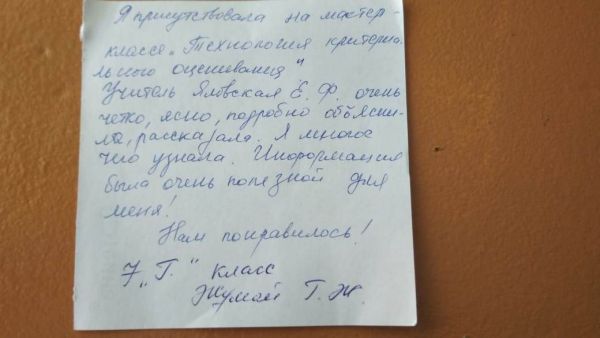 Я присутствовала на мастер-
классе „Технология критериа-
льного оценивания"
Учитель Яловская Е. Ф. очень
четко, ясно, подробно объясни-
ла, рассказала. Я много
чего узнала. Информация
была очень полезной для
меня!
Нам понравилось!
7 „Г" класс
Жумай Г. Ж.